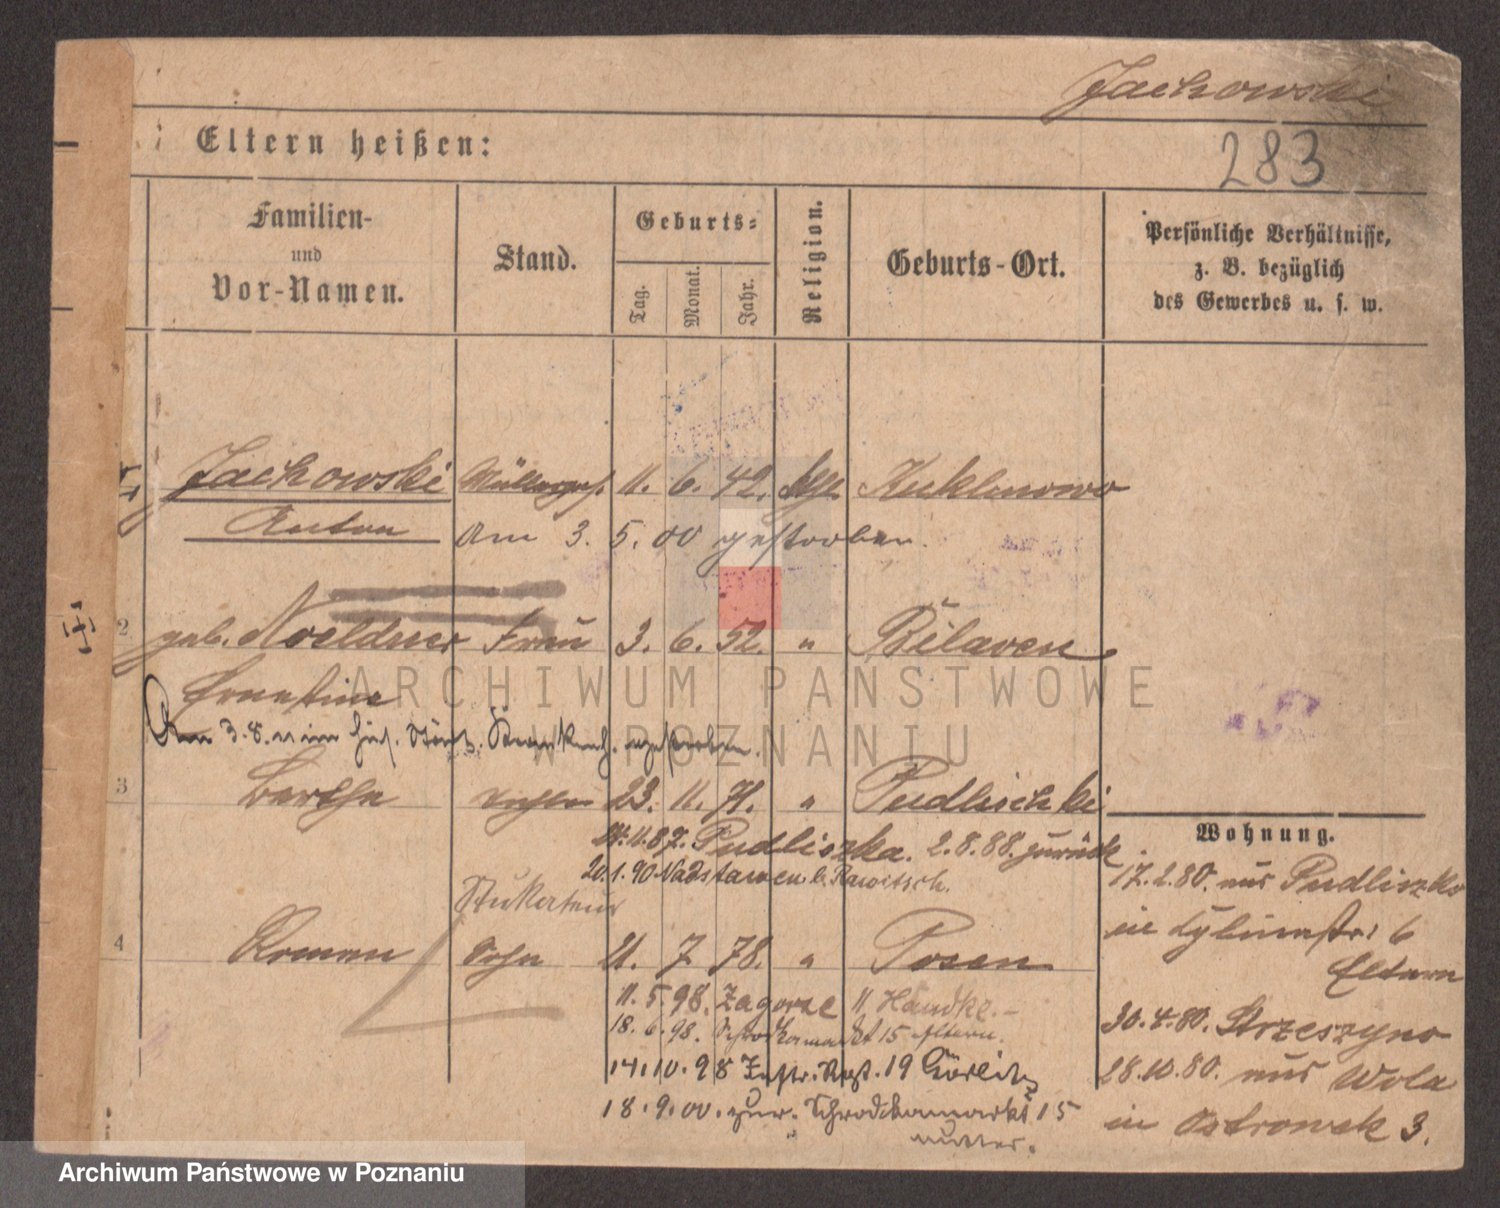 Jackowski
283
Eltern heißen:
Familien-
und
Vor-Namen.
Stand.
Geburts-
Tag.
Monat.
Jahr.
Religion.
Geburts-Ort.
Persönliche Verhältnisse,
z. B. bezüglich
des Gewerbes u. s. w.
Jackowski Müllerges. 11. 6. 42. Kuklinowo
Anton am 3. 5. 00 gestorben.
2 geb. Noeldner Frau 3. 6. 52. " Bělaven
Ernestine
Am 3.8. 11 im städt. Krankenh. gestorben.
3 Bertha 23. 11. 71. " Pudlischki
24.11.87. Pudliszka. 2.8.88. zurück
20.1.90 Nadstawen b. Rawitsch.
Stukateur
4 Roman Sohn 21. 7. 78. " Posen
11. 5. 98. Zagorze 11, Handke.
18. 6. 98. Schrodkamarkt 15 Eltern.
14.10.98 Inftr. Rgt. 19 Görlitz
18.9.00. zur. Schrodkamarkt 15
Mutter.
Wohnung.
17.2.80. aus Pudliszko
in 6
Eltern
30.4.80. Strzeszyno
28.10.80. aus Wola
in Ostrowek 3.
ARCHIWUM PAŃSTWOWE
W POZNANIU
Archiwum Państwowe w Poznaniu